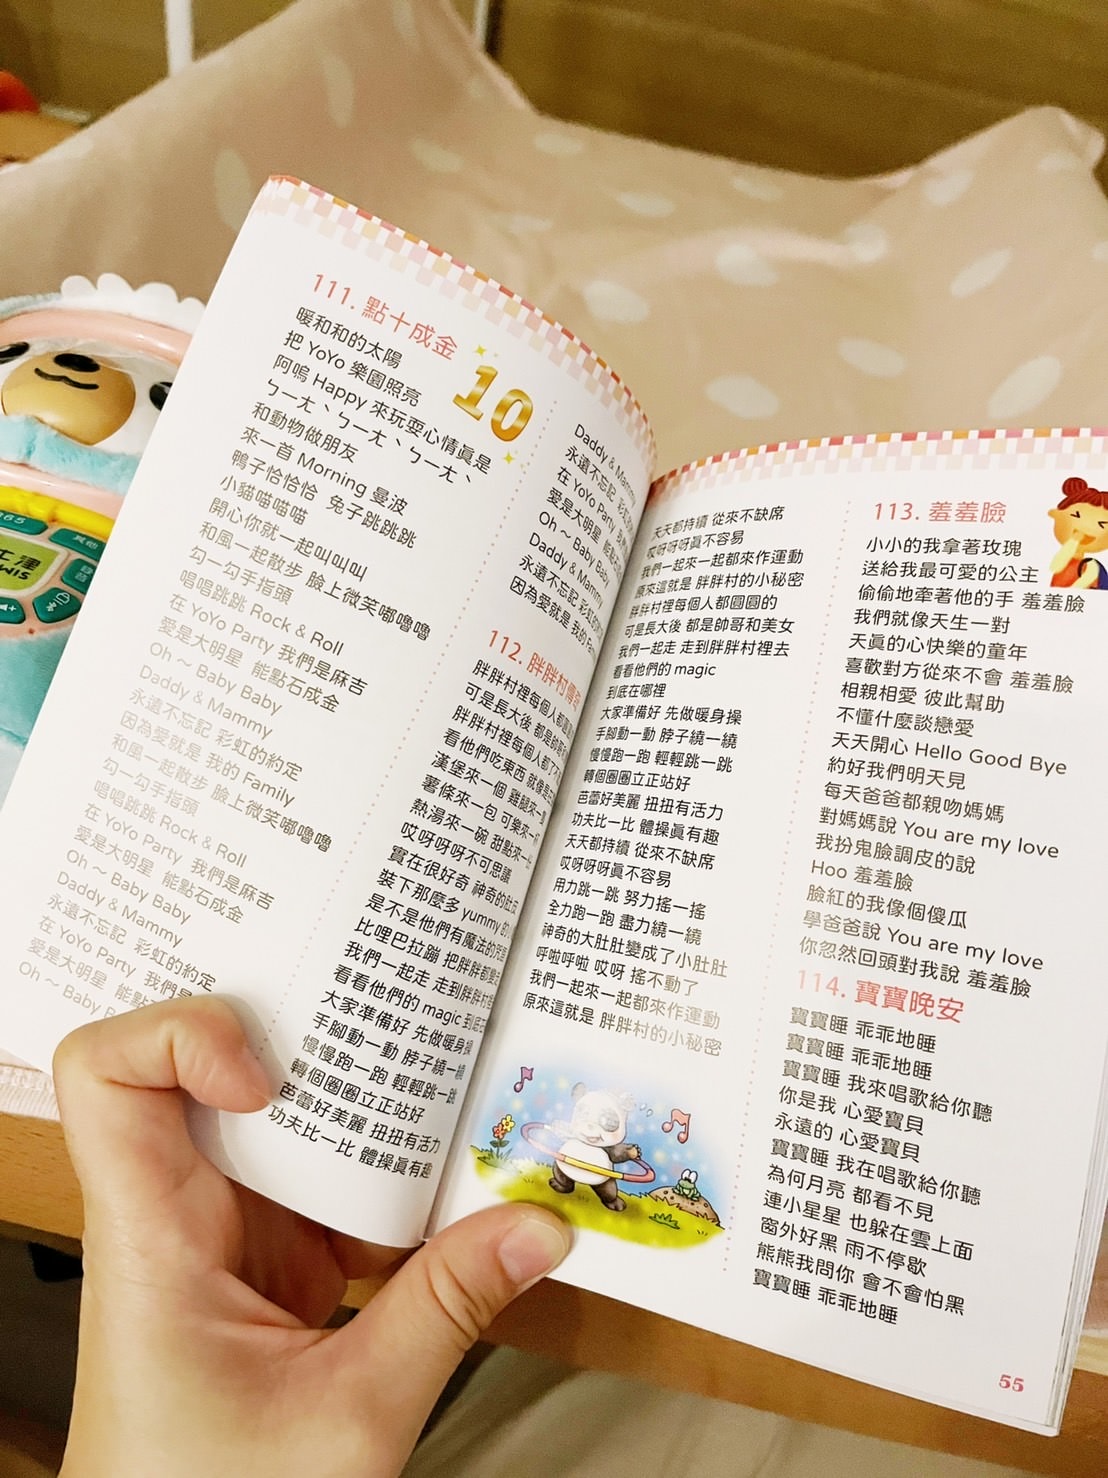 111. 點十成金
10
暖和和的太陽
把 YoYo 樂園照亮
阿嗚 Happy 來玩耍心情真是
ㄅㄧㄤˋ ㄅㄧㄤˋ ㄅㄧㄤˋ
和動物做朋友
來一首 Morning 曼波
鴨子恰恰恰 兔子跳跳跳
小貓喵喵喵
開心你就一起叫叫叫
和風一起散步 臉上微笑嘟嚕嚕
勾一勾手指頭
唱唱跳跳 Rock & Roll
在 YoYo Party 我們是麻吉
愛是大明星 能點石成金
Oh ~ Baby Baby
Daddy & Mammy
永遠不忘記 彩虹的約定
因為愛就是 我的 Family
和風一起散步 臉上微笑嘟嚕嚕
勾一勾手指頭
唱唱跳跳 Rock & Roll
在 YoYo Party 我們是麻吉
愛是大明星 能點石成金
Oh ~ Baby Baby
Daddy & Mammy
永遠不忘記 彩虹的約定
在 YoYo Party 我們是
愛是大明星 能點
Oh ~ Baby
Daddy & Mammy
永遠不忘記
在 YoYo Party
愛是大明星 能點
Oh ~ Baby Baby
Daddy & Mammy
永遠不忘記 彩虹的
因為愛就是 我的
112. 胖胖村傳奇
胖胖村裡每個人都
可是長大後 都是帥
胖胖村裡每個人都了不
看他們吃東西 就像是
漢堡來一個 雞腿來一
薯條來一包 可樂來一杯
熱湯來一碗 甜點來一
哎呀呀呀不可思議
實在很好奇 神奇的肚皮
裝下那麼多 yummy 的
是不是他們有魔法的咒語
比哩巴拉蹦 把胖胖都變
我們一起走 走到胖胖村裡
看看他們的 magic 到底在
大家準備好 先做暖身操
手腳動一動 脖子繞一繞
慢慢跑一跑 輕輕跳一跳
轉個圈圈立正站好
芭蕾好美麗 扭扭有活力
功夫比一比 體操真有趣
天天都持續 從來不缺席
哎呀呀呀真不容易
我們一起來一起都來作運動
原來這就是 胖胖村的小秘密
胖胖村裡每個人都圓圓的
可是長大後 都是帥哥和美女
我們一起走 走到胖胖村裡去
看看他們的 magic
到底在哪裡
大家準備好 先做暖身操
手腳動一動 脖子繞一繞
慢慢跑一跑 輕輕跳一跳
轉個圈圈立正站好
芭蕾好美麗 扭扭有活力
功夫比一比 體操真有趣
天天都持續 從來不缺席
哎呀呀呀真不容易
用力跳一跳 努力搖一搖
全力跑一跑 盡力繞一繞
神奇的大肚肚變成了小肚肚
呼啦呼啦 哎呀 搖不動了
我們一起來一起都來作運動
原來這就是 胖胖村的小秘密
113. 羞羞臉
小小的我拿著玫瑰
送給我最可愛的公主
偷偷地牽著他的手 羞羞臉
我們就像天生一對
天真的心快樂的童年
喜歡對方從來不會 羞羞臉
相親相愛 彼此幫助
不懂什麼談戀愛
天天開心 Hello Good Bye
約好我們明天見
每天爸爸都親吻媽媽
對媽媽說 You are my love
我扮鬼臉調皮的說
Hoo 羞羞臉
臉紅的我像個傻瓜
學爸爸說 You are my love
你忽然回頭對我說 羞羞臉
114. 寶寶晚安
寶寶睡 乖乖地睡
寶寶睡 乖乖地睡
寶寶睡 我來唱歌給你聽
你是我 心愛寶貝
永遠的 心愛寶貝
寶寶睡 我在唱歌給你聽
為何月亮 都看不見
連小星星 也躲在雲上面
窗外好黑 雨不停歇
熊熊我問你 會不會怕黑
寶寶睡 乖乖地睡
55